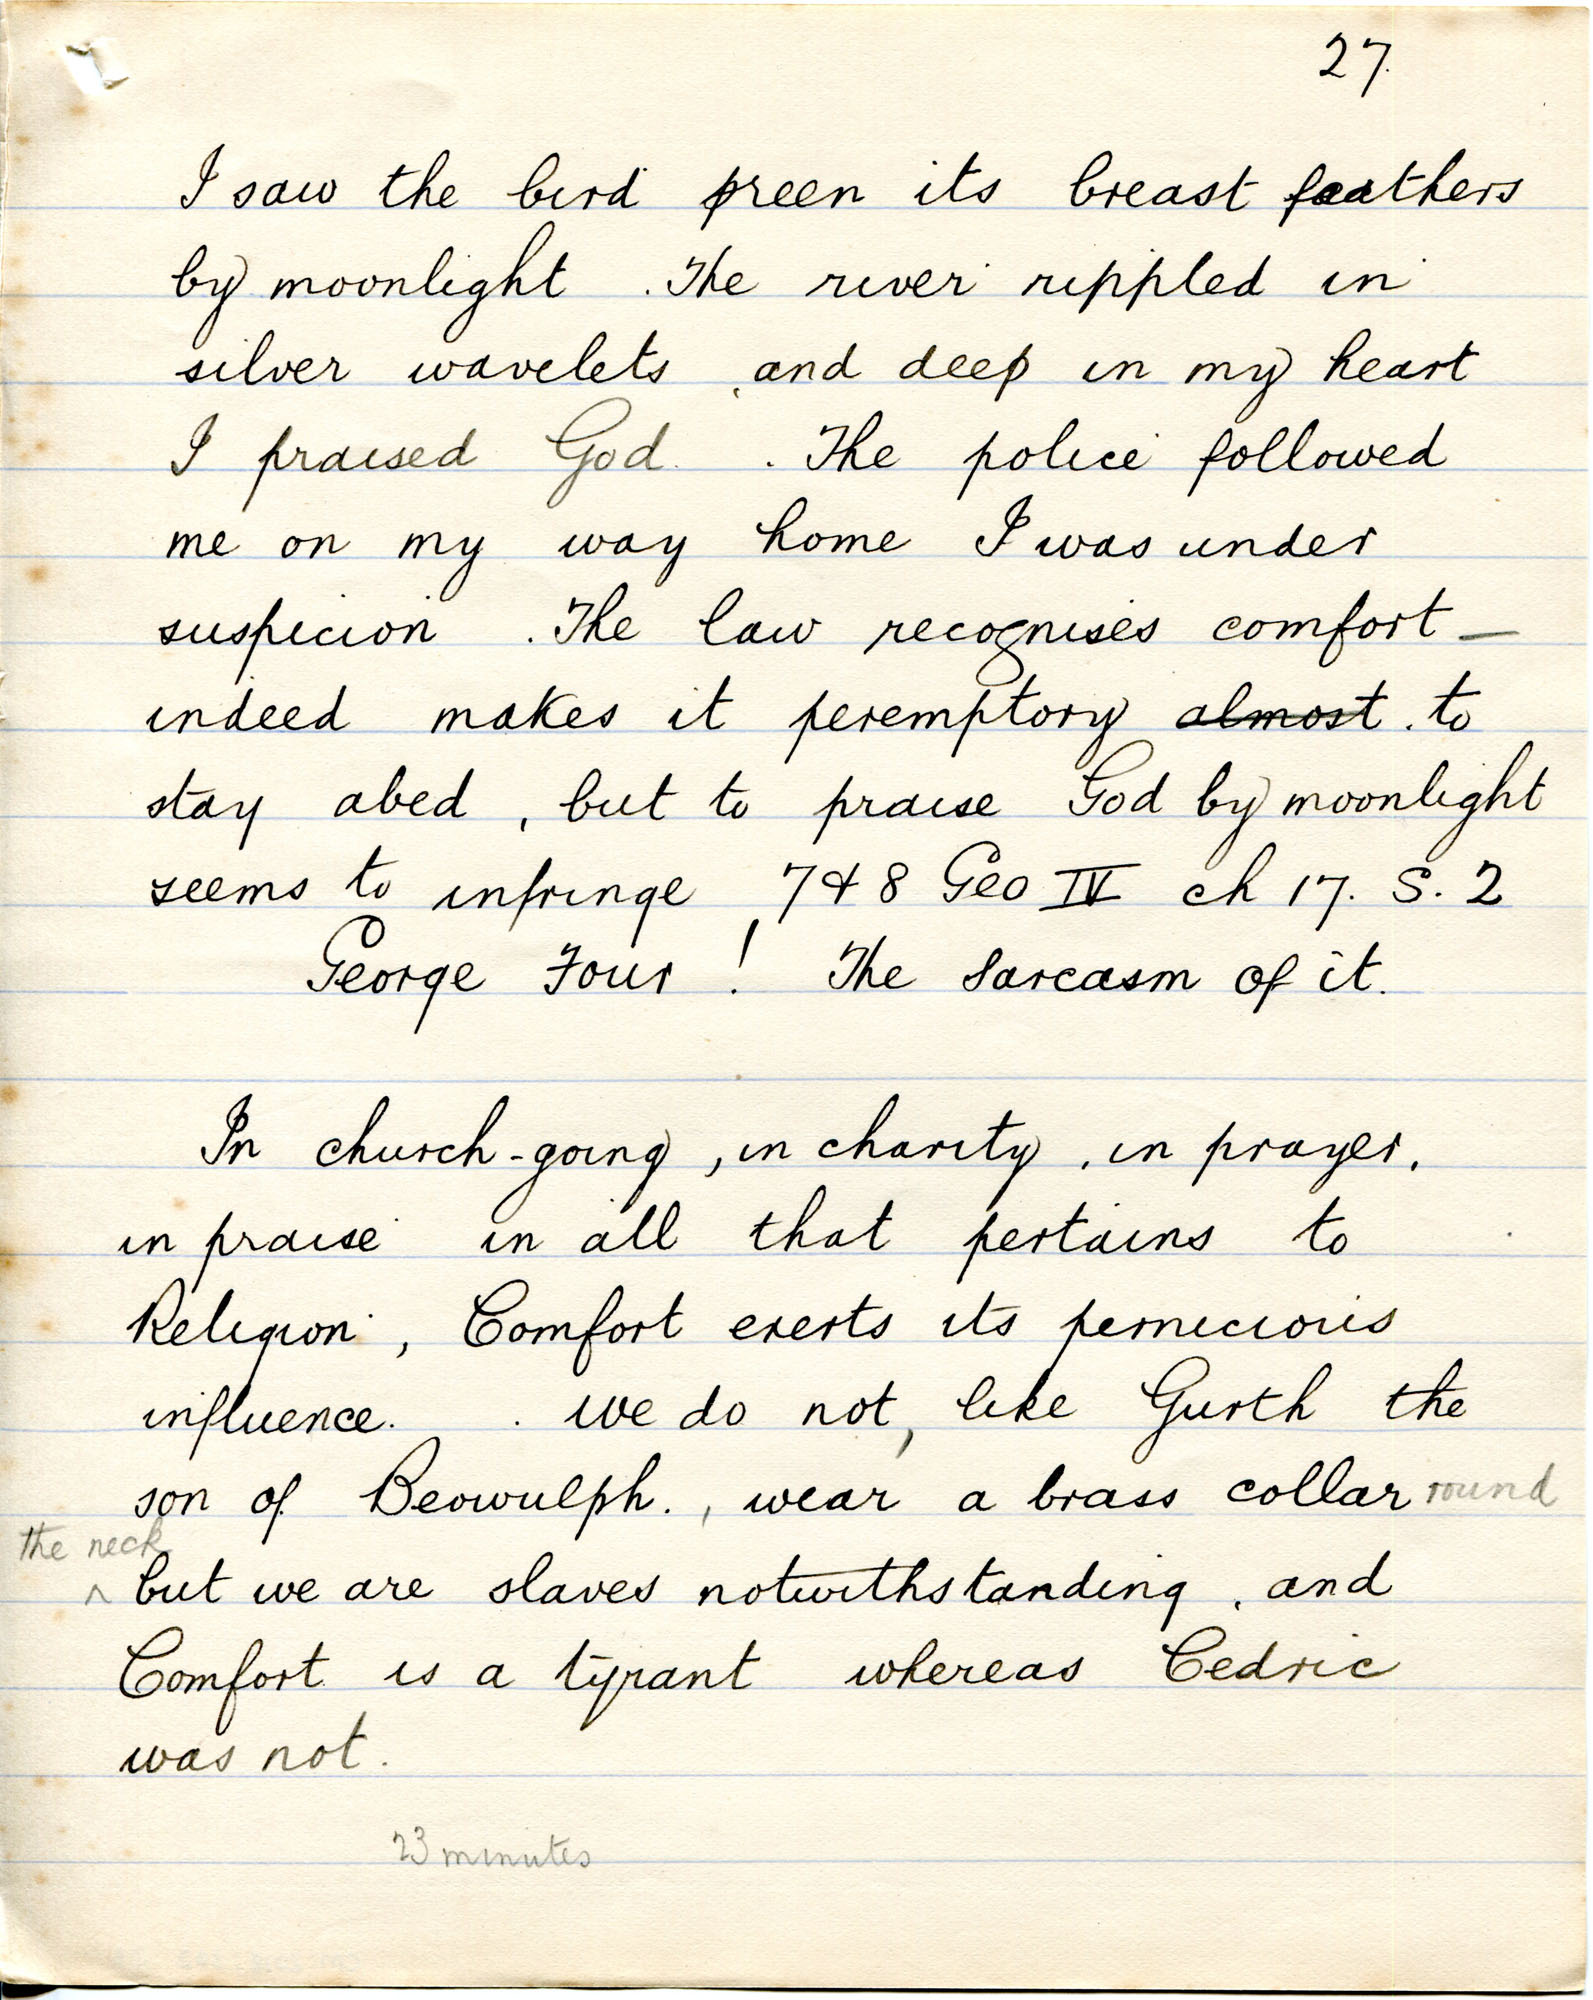 27.
I saw the bird preen its breast feathers
by moonlight . The river rippled in
silver wavelets , and deep in my heart
I praised God . . The police followed
me on my way home I was under
suspicion . The law recognises comfort —
indeed makes it peremptory almost . to
stay abed , but to praise God by moonlight
seems to infringe 7 & 8 Geo IV ch 17. S. 2
George Four ! The Sarcasm of it.
In church-going , in charity , in prayer ,
in praise in all that pertains to
Religion , Comfort exerts its pernicious
influence. . we do not, like Gurth the
son of Beowulph. , wear a brass collar round
the neck
^ but we are slaves notwithstanding , and
Comfort is a tyrant whereas Cedric
was not .
23 minutes